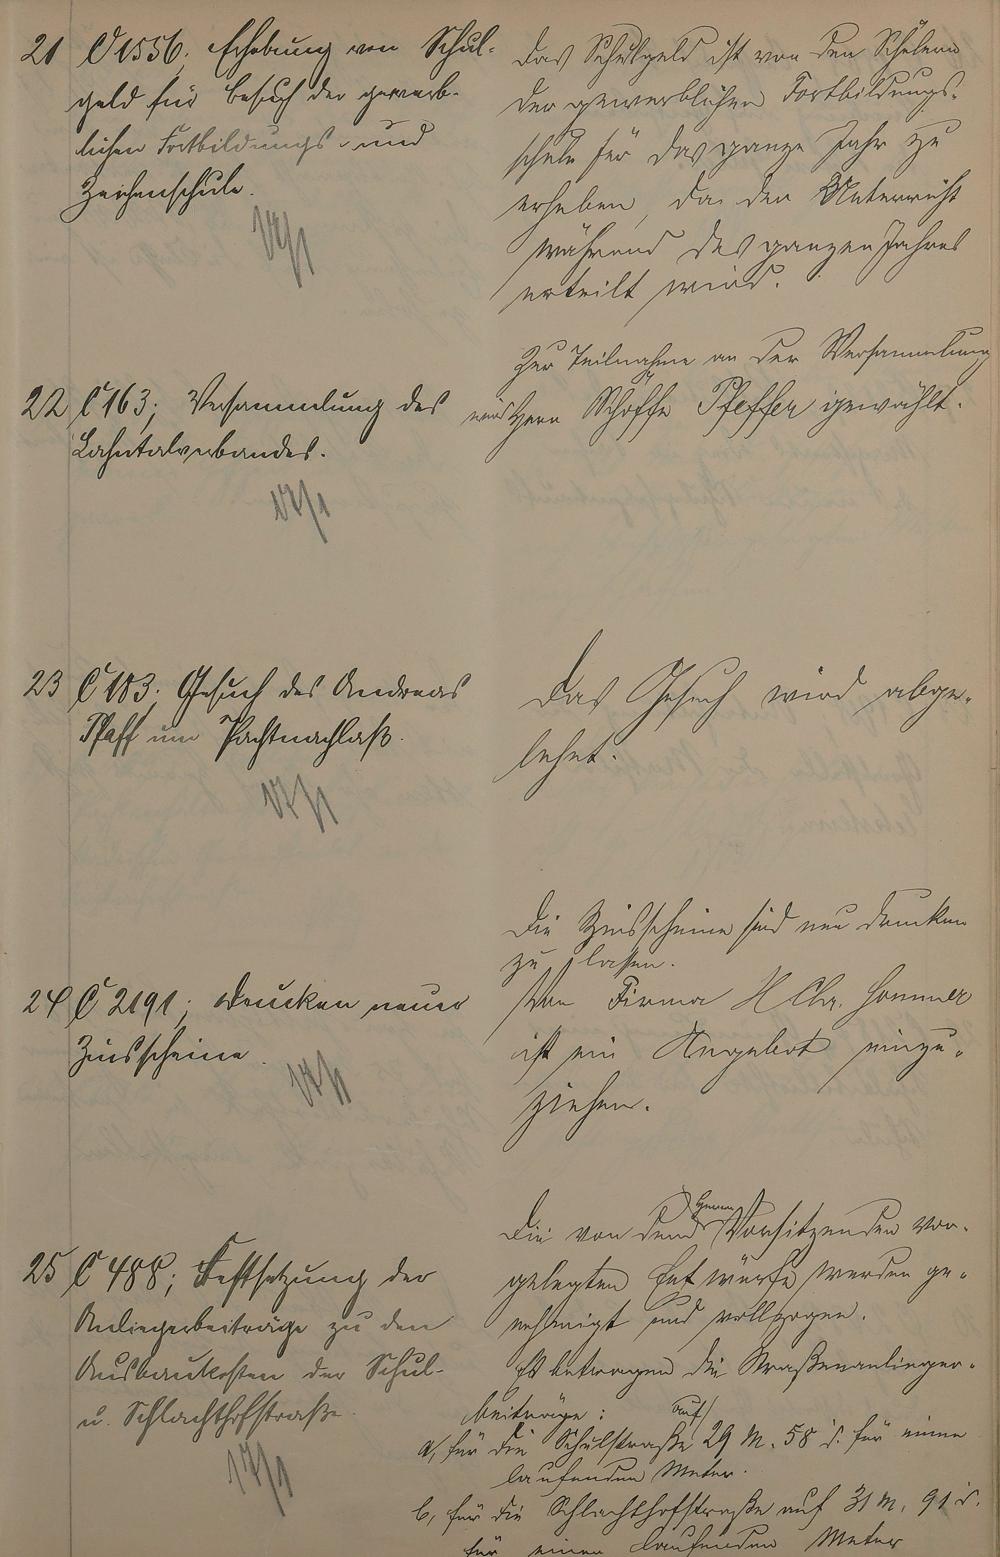 21 C 1556. Erhebung von Schul-
geld für Besuch der gewerb-
lichen Fortbildungs- und
Zeichenschule.
Das Schulgeld ist von den Schülern
der gewerblichen Fortbildungs-
schule für das ganze Jahr zu
erheben, da der Unterricht
während des ganzen Jahres
erteilt wird.
22 C 163; Versammlung des
Lahntalverbandes.
17/1
Zur Teilnahme an der Versammlung
wird Herr Schöffe Pfeffer gewählt.
23 C 183. Gesuch des Andreas
Pfaff um Pachtnachlaß.
17/1
Das Gesuch wird abge-
lehnt.
24 C 2191; Drucken neuer
Zinsscheine.
17/1
Die Zinsscheine sind neu drucken
zu lassen.
Von Firma H Chr. Sommer
ist ein Angebot einzu-
ziehen.
25 C 488; Festsetzung der
Anliegerbeiträge zu den
Ausbaukosten der Schul-
u. Schlachthofstraße.
17/1
Die von dem Herrn Vorsitzenden vor-
gelegten Entwürfe werden ge-
nehmigt und vollzogen.
Es betragen die Straßenanlieger-
beiträge:
a, für die Schulstraße auf 29 M. 58 d. für einen
laufenden Meter.
b, für die Schlachthofstraße auf 31 M. 91 d.
für einen laufenden Meter